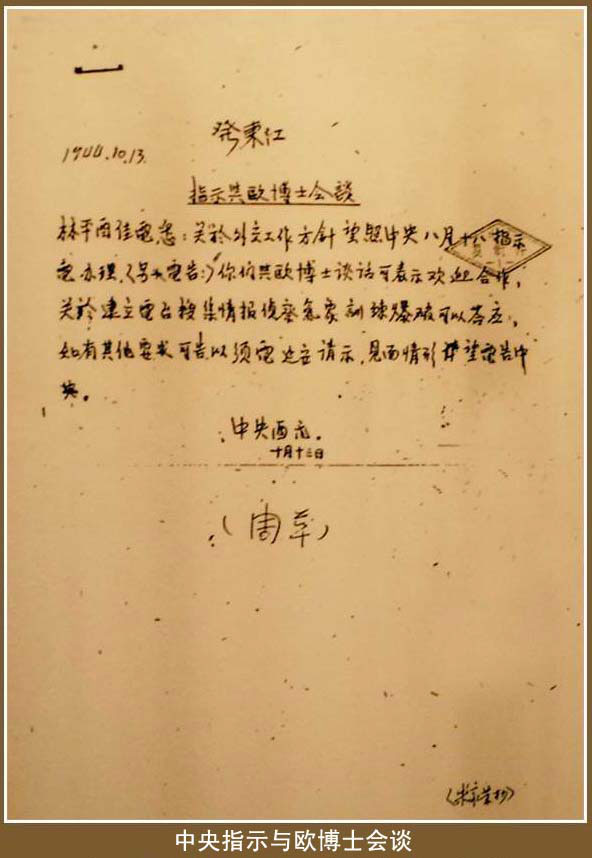 發東江
1944.10.13.
指示共欧博士会談
林平酉佳電悉：关於外交工作方針望照中央八月十八指示
電办理，你们共欧博士谈话可表示欢迎合作，
关於建立电台搜集情报侦察气象訓练爆破可以答应，
如有其他要求可告以须電延安请示，見面情形并望電告中
央。
中央酉元.
十月十三日
（周草）
中央指示与欧博士会谈